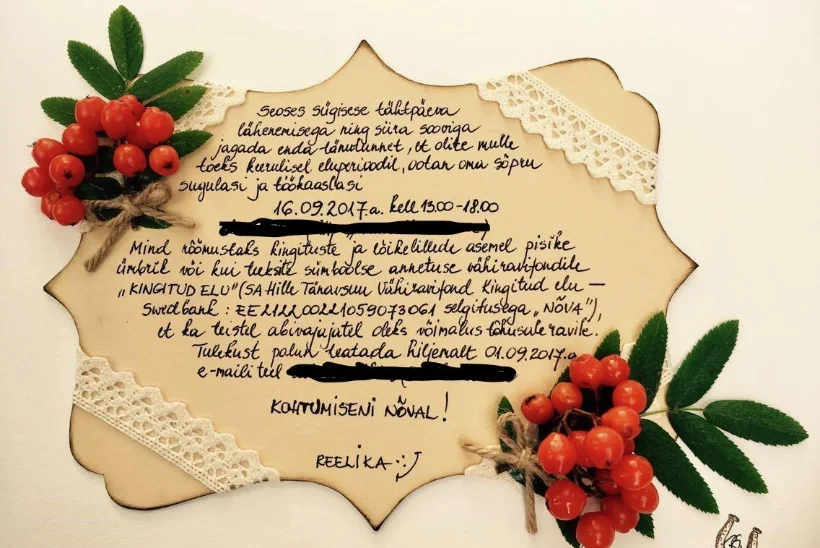 Seoses sügisese tähtpäeva
lähenemisega ning siira sooviga
jagada enda tänutunnet, et olite mulle
toeks keerulisel eluperioodil, ootan oma sõpru
sugulasi ja töökaaslasi
16.09.2017.a. kell 13.00-18.00
Mind rõõmustaks kingituste ja lõikelillede asemel pisike
ümbrik või kui teeksite sümboolse annetuse vähiravifondile
„KINGITUD ELU" (SA Hille Tänavsuu Vähiravifond Kingitud elu —
Swedbank: EE212200221059073061 selgitusega „NÕVA"),
et ka teistel abivajajatel oleks võimalus tõhusale ravile.
Tulekust palun teatada hiljemalt 01.09.2017.a
e-maili teel
KOHTUMISENI NÕVAL!
REELIKA :)